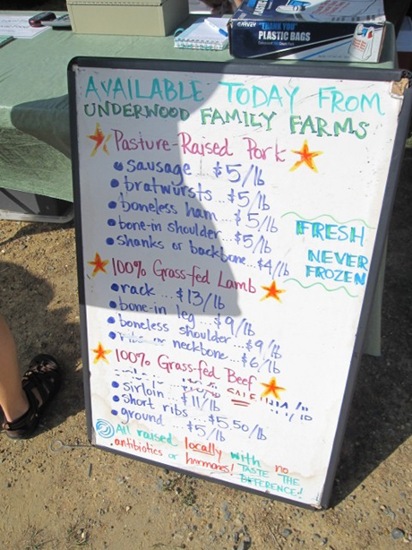 THANK YOU
PLASTIC BAGS
AVAILABLE TODAY FROM
UNDERWOOD FAMILY FARMS
Pasture-Raised Pork
• sausage $5/lb
• bratwursts...$5/lb
• boneless ham...$5/lb
• bone-in shoulder...$5/lb
• shanks or backbone...$4/lb
FRESH
NEVER
FROZEN
100% Grass-fed Lamb
• rack...$13/lb
• bone-in leg...$9/lb
• boneless shoulder...$9/lb
• ribs or neckbone...$6/lb
100% Grass-fed Beef
• sirloin...$11/lb
• short ribs...$5.50/lb
• ground...$5/lb
All raised locally with no
antibiotics or hormones! TASTE THE
DIFFERENCE!